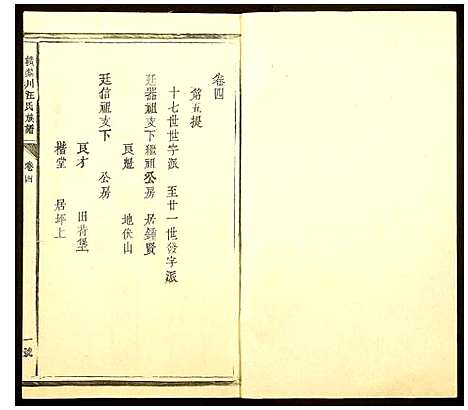 卷四
第五提
十七世世字派　至廿一世發字派
廷器祖支下繼祖公房　居鍾賢
良魁　地伏山
廷信祖支下　公房
良才　田背堡
楷堂　居坪上
川汪氏族譜
卷四
一號